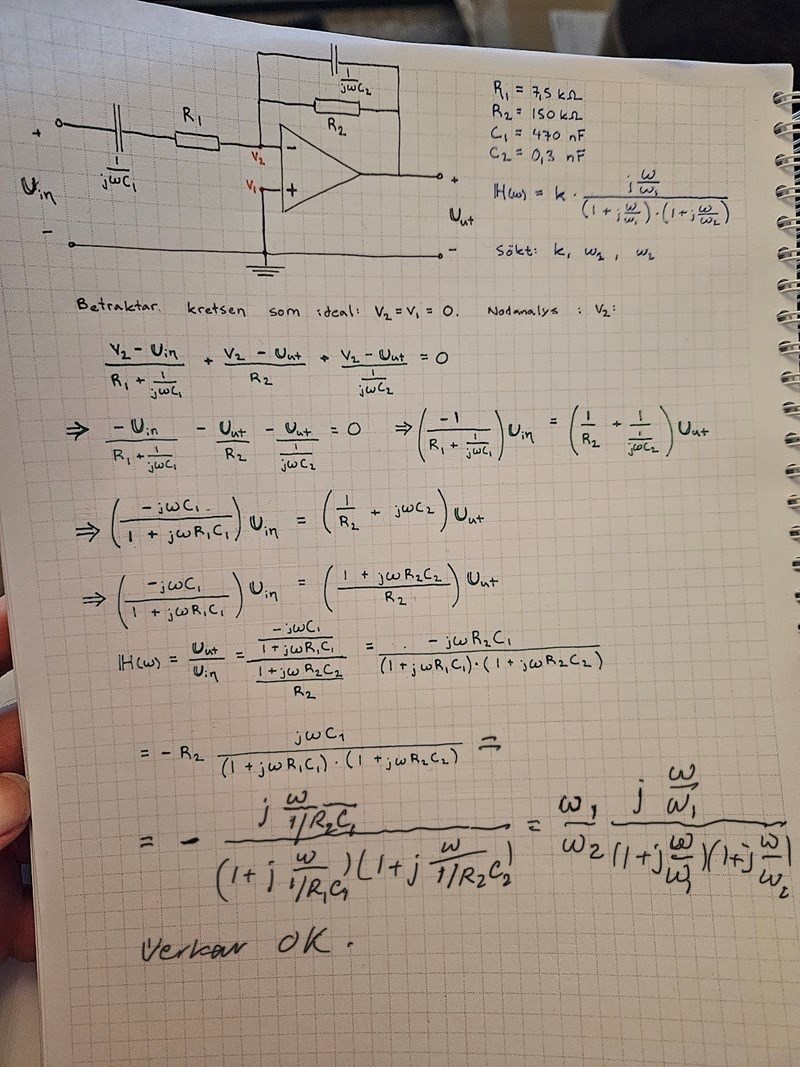 R₁ = 7,5 kΩ
R₂ = 150 kΩ
C₁ = 470 nF
C₂ = 0,3 nF
ℍ(ω) = k · (j ω/ω₁) / ((1 + j ω/ω₁) · (1 + j ω/ω₂))
Sökt: k, ω₁, ω₂
1/jωC₂
R₂
R₁
1/jωC₁
+
Uin
-
V₂
-
V₁
+
+
Uut
-
Betraktar kretsen som ideal: V₂ = V₁ = 0. Nodanalys : V₂:
(V₂ - Uin)/(R₁ + 1/jωC₁) + (V₂ - Uut)/R₂ + (V₂ - Uut)/(1/jωC₂) = 0
⇒ -Uin/(R₁ + 1/jωC₁) - Uut/R₂ - Uut/(1/jωC₂) = 0 ⇒ (-1/(R₁ + 1/jωC₁)) Uin = (1/R₂ + 1/(1/jωC₂)) Uut
⇒ (-jωC₁/(1 + jωR₁C₁)) Uin = (1/R₂ + jωC₂) Uut
⇒ (-jωC₁/(1 + jωR₁C₁)) Uin = ((1 + jωR₂C₂)/R₂) Uut
ℍ(ω) = Uut/Uin = (-jωC₁/(1 + jωR₁C₁))/((1 + jωR₂C₂)/R₂) = -jωR₂C₁/((1 + jωR₁C₁) · (1 + jωR₂C₂))
= - R₂ jωC₁/((1 + jωR₁C₁) · (1 + jωR₂C₂)) =
= - (j ω/(1/R₂C₁))/((1 + j ω/(1/R₁C₁))(1 + j ω/(1/R₂C₂))) = ω₁/ω₂ (j ω/ω₁)/((1 + j ω/ω₁)(1 + j ω/ω₂))
Verkar OK.